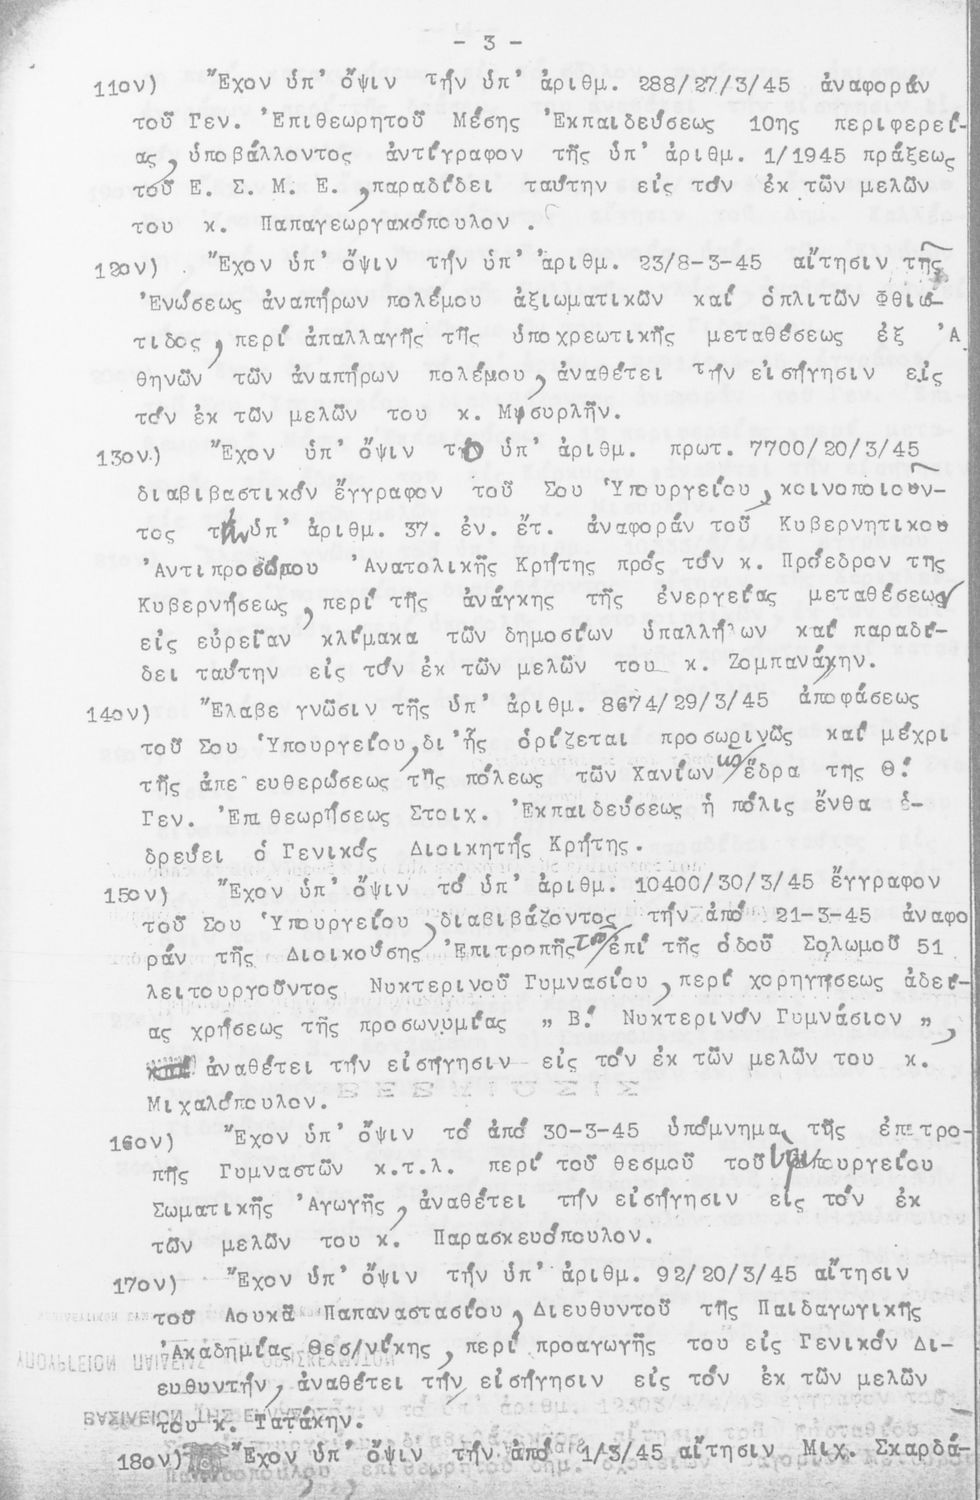 - 3 -
11ον) Ἔχον ὑπ' ὄψιν τήν ὑπ' ἀριθμ. 288/27/3/45 ἀναφοράν
τοῦ Γεν. Ἐπιθεωρητοῦ Μέσης Ἐκπαιδεύσεως 10ης περιφερεί-
ας, ὑποβάλλοντος ἀντίγραφον τῆς ὑπ' ἀριθμ. 1/1945 πράξεως
τοῦ Ε. Σ. Μ. Ε., παραδίδει ταύτην εἰς τόν ἐκ τῶν μελῶν
του κ. Παπαγεωργακόπουλον .
12ον) Ἔχον ὑπ' ὄψιν τήν ὑπ' ἀριθμ. 23/8-3-45 αἴτησιν τῆς
Ἑνώσεως ἀναπήρων πολέμου ἀξιωματικῶν καί ὁπλιτῶν Φθιώ-
τιδος, περί ἀπαλλαγῆς τῆς ὑποχρεωτικῆς μεταθέσεως ἐξ Ἀ
θηνῶν τῶν ἀναπήρων πολέμου, ἀναθέτει τήν εἰσήγησιν εἰς
τόν ἐκ τῶν μελῶν του κ. Μυσυρλῆν.
13ον) Ἔχον ὑπ' ὄψιν τό ὑπ' ἀριθμ. πρωτ. 7700/20/3/45
διαβιβαστικόν ἔγγραφον τοῦ Σου Ὑπουργείου, κοινοποιοῦν-
τος τήν ὑπ' ἀριθμ. 37. ἐν. ἔτ. ἀναφοράν τοῦ Κυβερνητικου
Ἀντιπροσώπου Ἀνατολικῆς Κρήτης πρός τόν κ. Πρόεδρον της
Κυβερνήσεως, περί τῆς ἀνάγκης τῆς ἐνεργείας μεταθέσεως
εἰς εὐρεῖαν κλίμακα τῶν δημοσίων ὑπαλλήλων καί παραδί-
δει ταύτην εἰς τόν ἐκ τῶν μελῶν του κ. Ζομπανάκην.
14ον) Ἔλαβε γνῶσιν τῆς ὑπ' ἀριθμ. 8674/29/3/45 ἀποφάσεως
τοῦ Σου Ὑπουργείου, δι' ἧς ὁρίζεται προσωρινῶς καί μέχρι
τῆς ἀπελευθερώσεως τῆς πόλεως τῶν Χανίων ὡς ἕδρα της Θ.'
Γεν. Ἐπιθεωρήσεως Στοιχ. Ἐκπαιδεύσεως ἡ πόλις ἔνθα ἑ-
δρεύει ὁ Γενικός Διοικητής Κρήτης.
15ον) Ἔχον ὑπ' ὄψιν τό ὑπ' ἀριθμ. 10400/30/3/45 ἔγγραφον
τοῦ Σου Ὑπουργείου, διαβιβάζοντος τήν ἀπό 21-3-45 ἀναφο
ράν τῆς Διοικούσης Ἐπιτροπῆς τοῦ ἐπί τῆς ὁδοῦ Σολωμοῦ 51
λειτουργοῦντος Νυκτερινοῦ Γυμνασίου, περί χορηγήσεως ἀδεί-
ας χρήσεως τῆς προσωνυμίας " Β.' Νυκτερινόν Γυμνάσιον ",
ἀναθέτει τήν εἰσήγησιν εἰς τόν ἐκ τῶν μελῶν του κ.
Μιχαλόπουλον.
16ον) Ἔχον ὑπ' ὄψιν τό ἀπό 30-3-45 ὑπόμνημα τῆς ἐπιτρο-
πῆς Γυμναστῶν κ.τ.λ. περί τοῦ θεσμοῦ τοῦ Ὑφυπουργείου
Σωματικῆς Ἀγωγῆς, ἀναθέτει τήν εἰσήγησιν εἰς τόν ἐκ
τῶν μελῶν του κ. Παρασκευόπουλον.
17ον) Ἔχον ὑπ' ὄψιν τήν ὑπ' ἀριθμ. 92/20/3/45 αἴτησιν
τοῦ Λουκᾶ Παπαναστασίου, Διευθυντοῦ τῆς Παιδαγωγικῆς
Ἀκαδημίας Θεσ/νίκης, περί προαγωγῆς του εἰς Γενικόν Δι-
ευθυντήν, ἀναθέτει τήν εἰσήγησιν εἰς τόν ἐκ τῶν μελῶν
του κ. Τατάκην.
18ον) Ἔχον ὑπ' ὄψιν τήν ἀπό 1/3/45 αἴτησιν Μιχ. Σκαρδά-